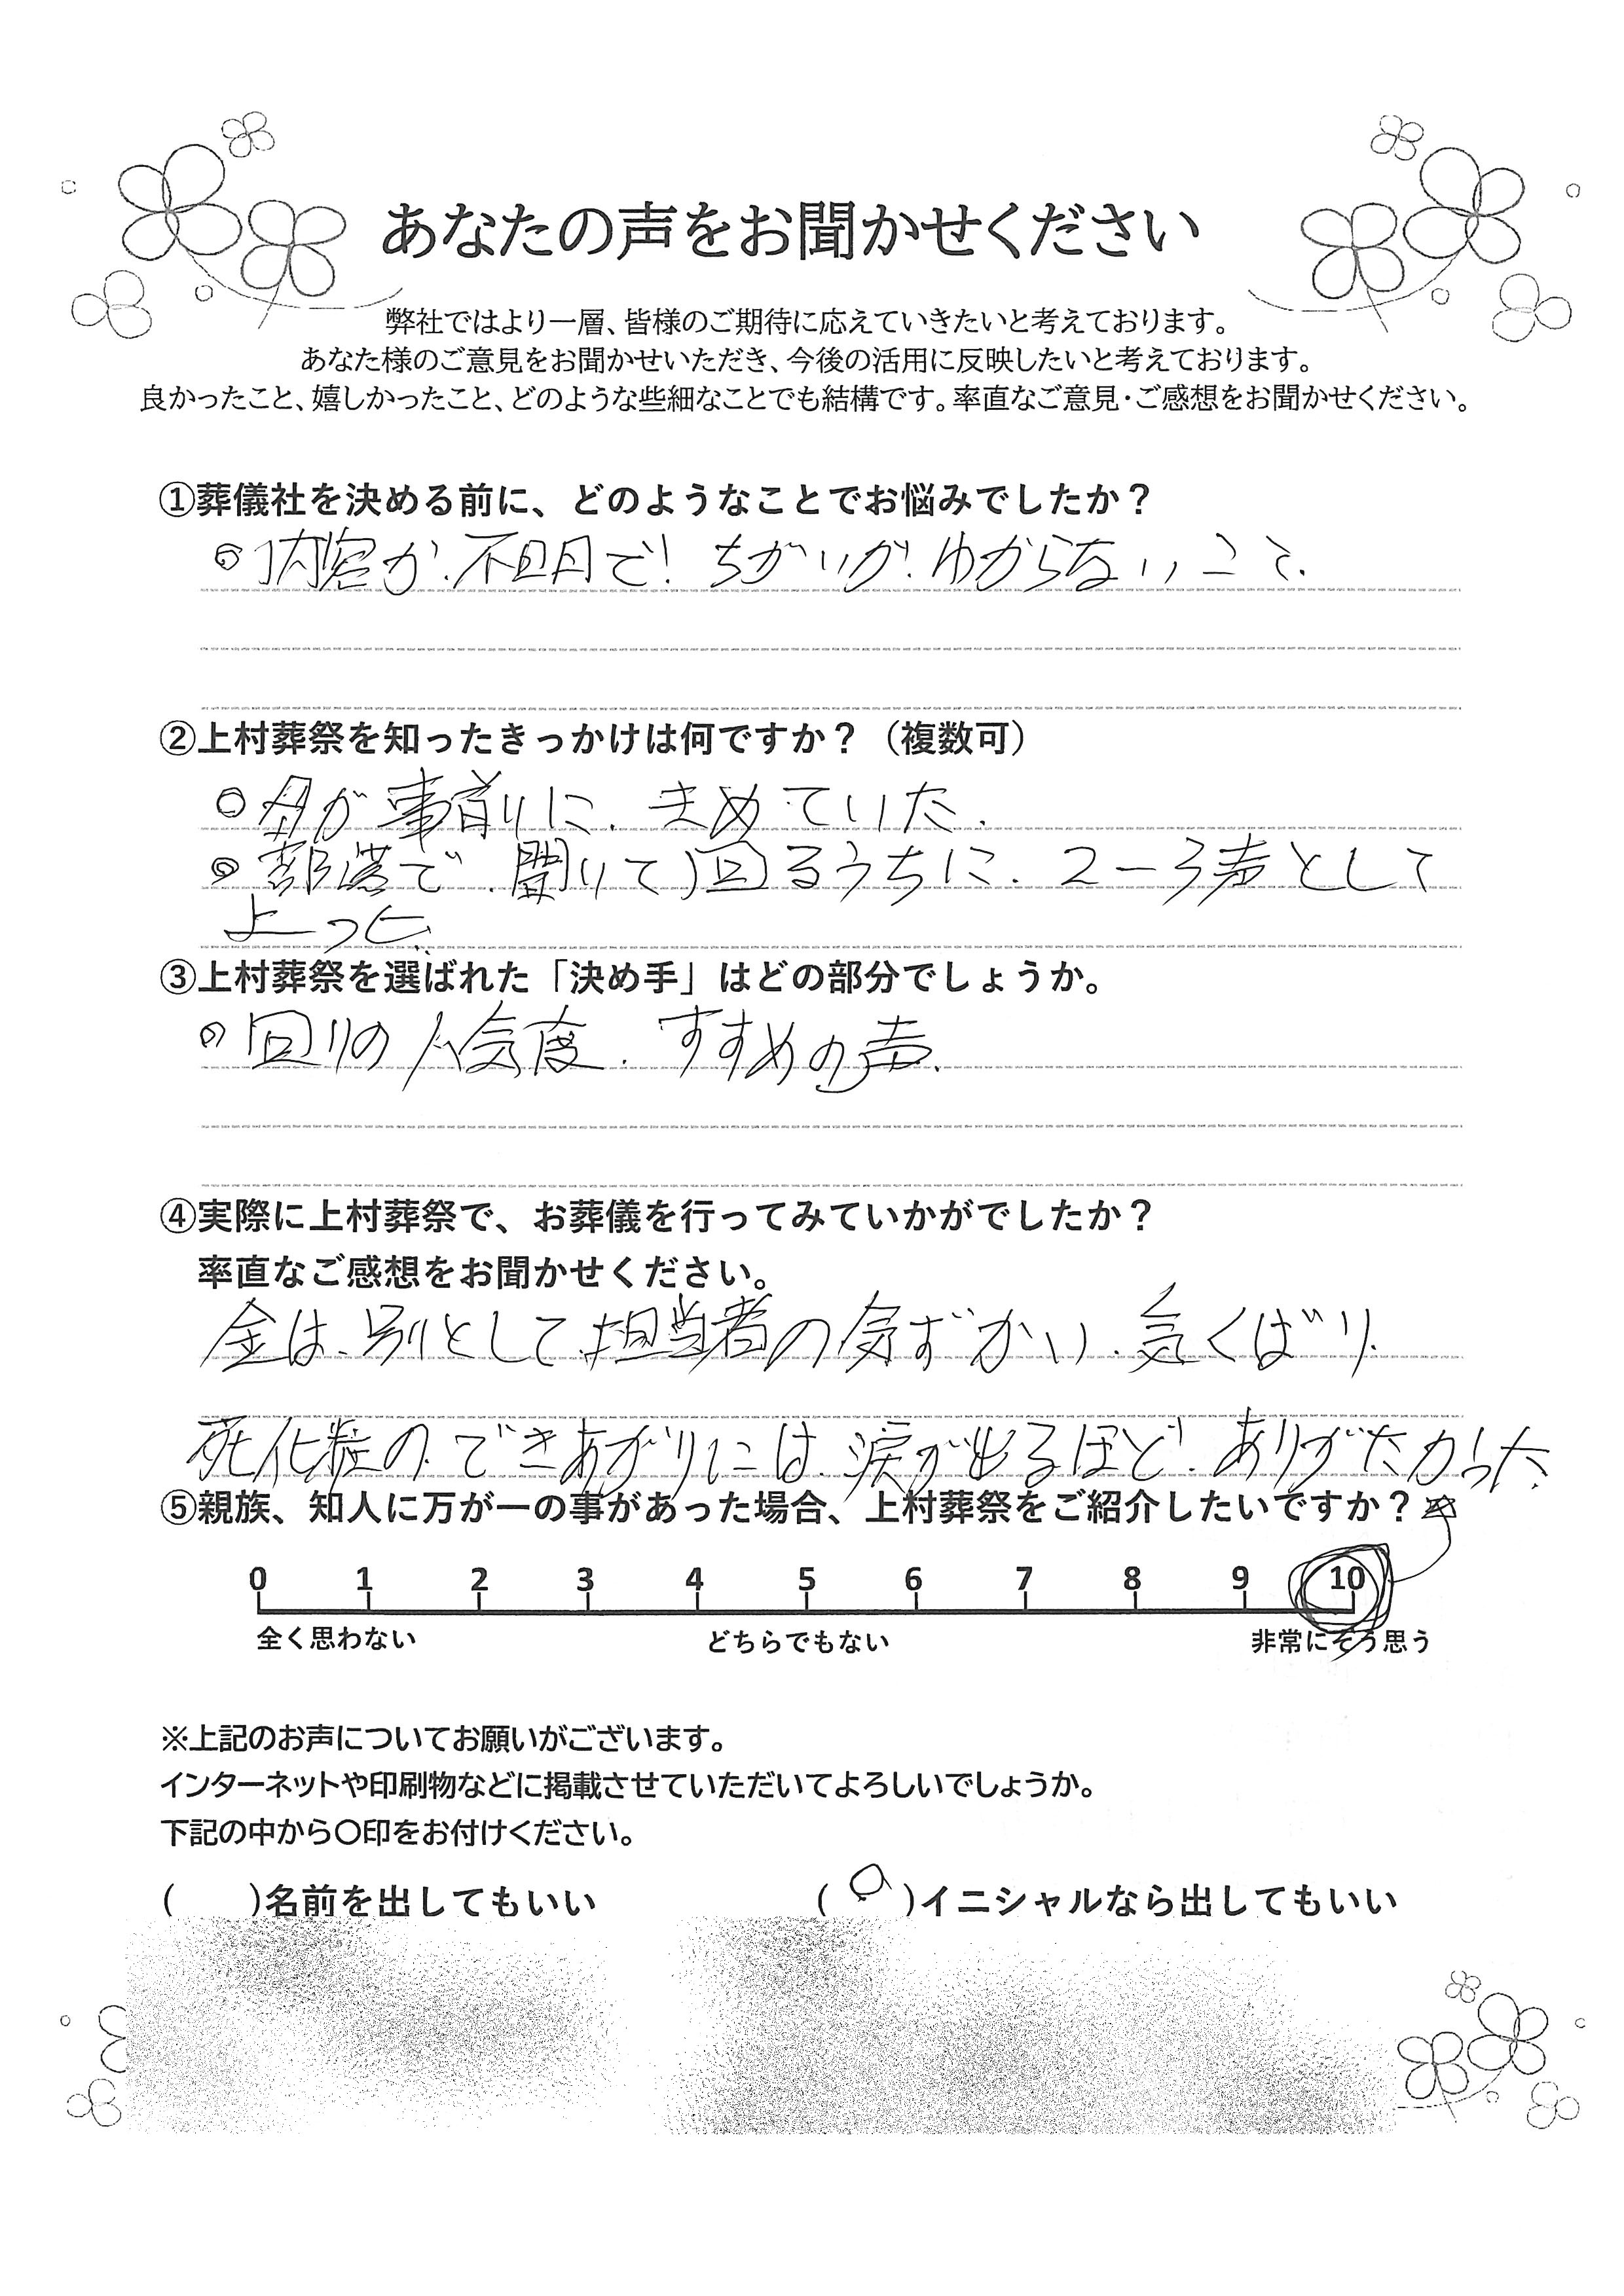 あなたの声をお聞かせください
弊社ではより一層、皆様のご期待に応えていきたいと考えております。
あなた様のご意見をお聞かせいただき、今後の活用に反映したいと考えております。
良かったこと、嬉しかったこと、どのような些細なことでも結構です。率直なご意見・ご感想をお聞かせください。
①葬儀社を決める前に、どのようなことでお悩みでしたか?
◎内容が、不明で! ちがいが、わからないこと.
②上村葬祭を知ったきっかけは何ですか?(複数可)
○母が事前に、きめていた.
◎部落で、聞いて回るうちに、2-3声として
上った.
③上村葬祭を選ばれた「決め手」はどの部分でしょうか。
○回りの人気度、すすめの声.
④実際に上村葬祭で、お葬儀を行ってみていかがでしたか?
率直なご感想をお聞かせください。
金は、別として、担当者の気ずかい、気くばり.
死化粧の、できあがりには、涙が出るほど、ありがたかった.
⑤親族、知人に万が一の事があった場合、上村葬祭をご紹介したいですか?
0 1 2 3 4 5 6 7 8 9 10
全く思わない どちらでもない 非常にそう思う
※上記のお声についてお願いがございます。
インターネットや印刷物などに掲載させていただいてよろしいでしょうか。
下記の中から〇印をお付けください。
( )名前を出してもいい (○)イニシャルなら出してもいい